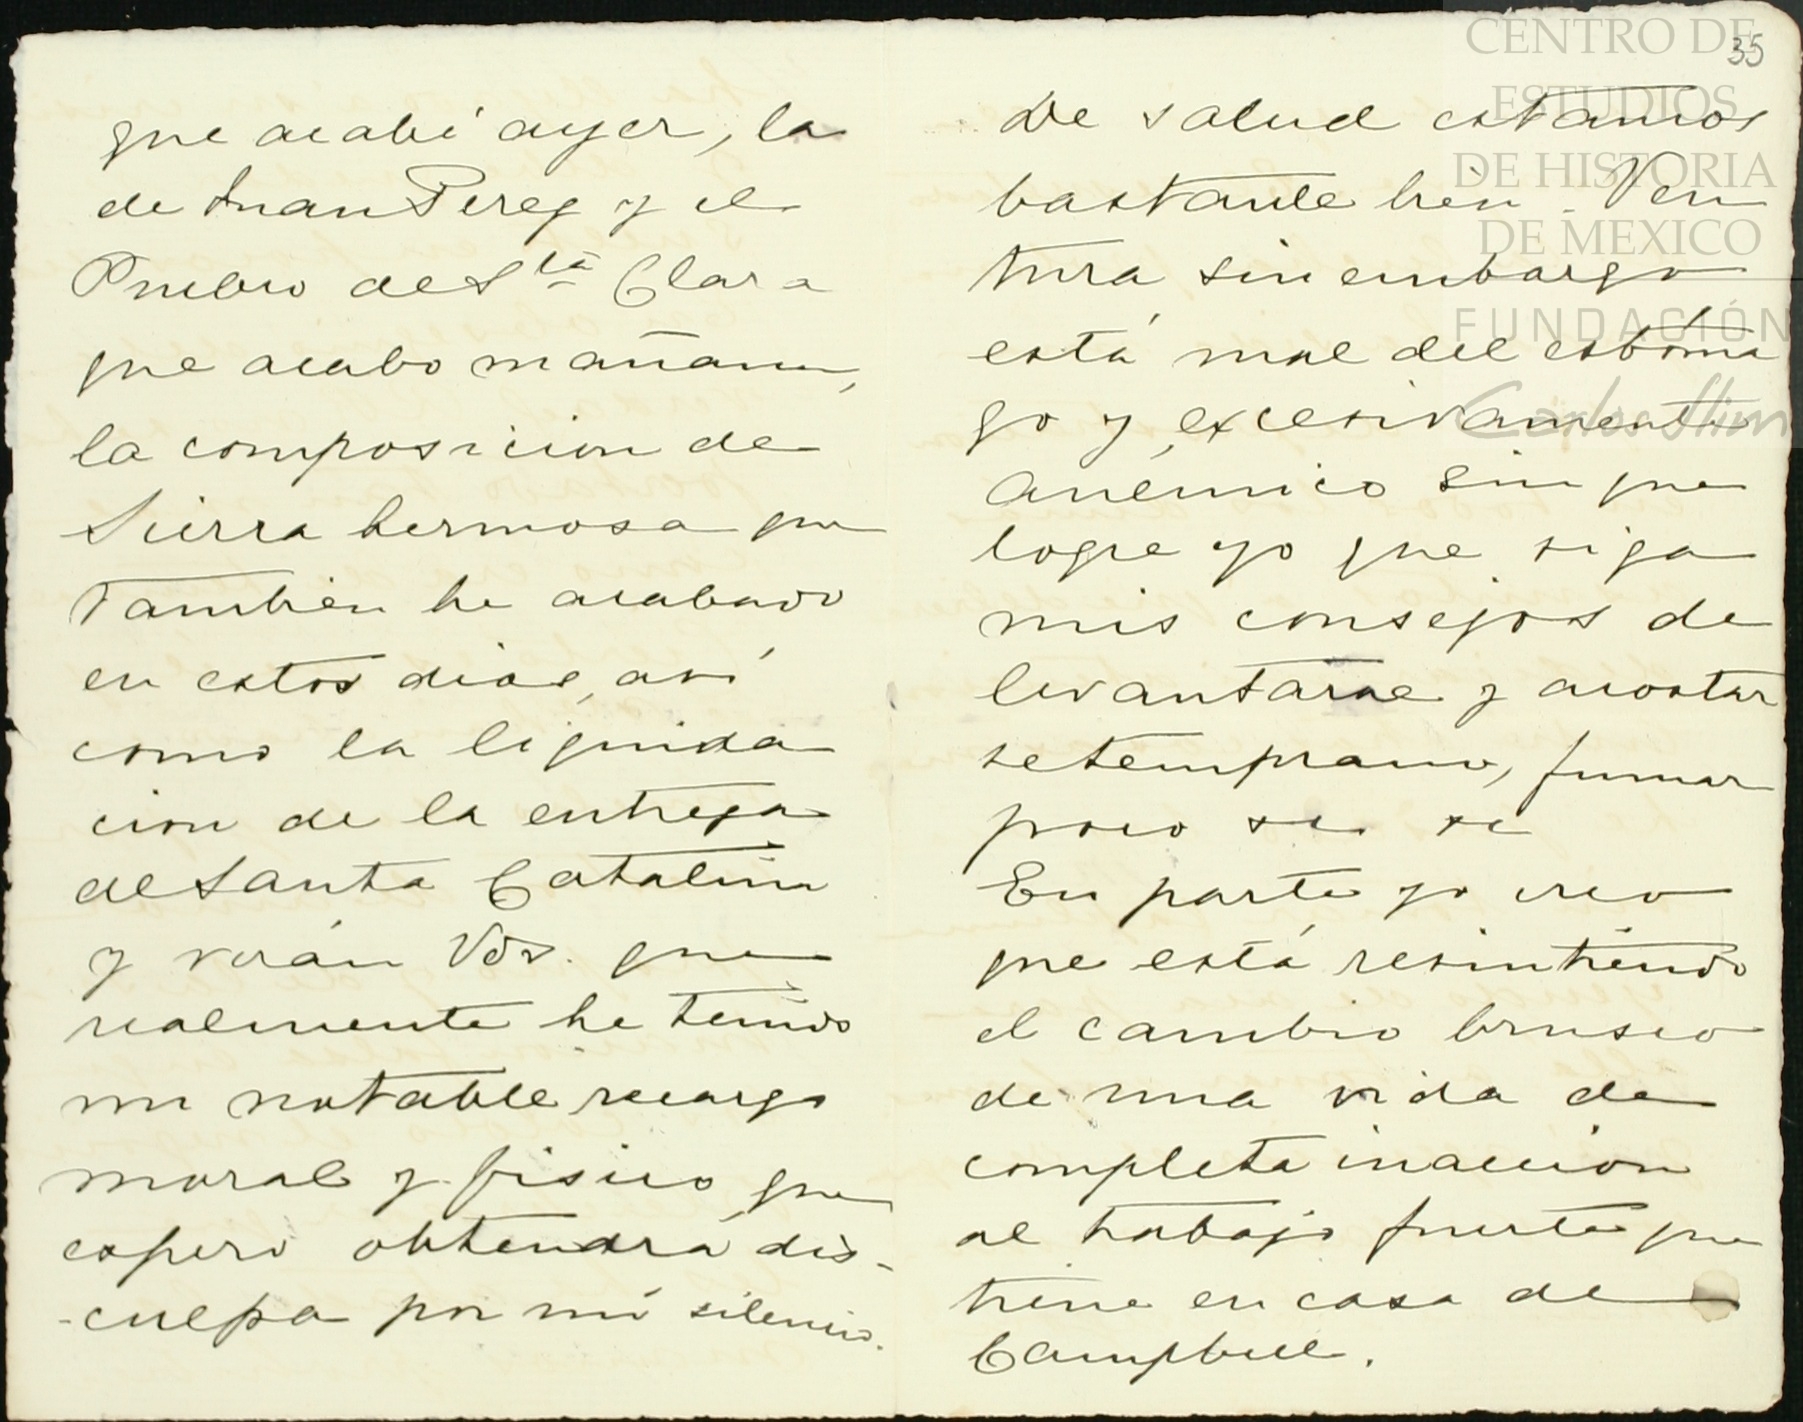 que acabé ayer, la
de Juan Perez y el
Pueblo de Sta Clara
que acabo mañana,
la composicion de
Sierra hermosa que
tambien he acabado
en estos dias, así
como la liquida
cion de la entrega
de Santa Catalina
y verán Vds. que
realmente he tenido
un notable recargo
moral y fisico que
espero obtendrá dis-
-culpa por mi silencio.
35
De salud estamos
bastante bien. Ven
tura sin embargo
está mal del estóma
go y excesivamente
anémico sin que
logre yo que siga
mis consejos de
levantarse y acostar
se temprano, fumar
poco
En parte yo creo
que está resintiendo
el cambio brusco
de una vida de
completa inaccion
al trabajo fuerte que
tiene en casa de
Campbell.
CENTRO DE
ESTUDIOS
DE HISTORIA
DE MEXICO
FUNDACIÓN
Carlos Slim